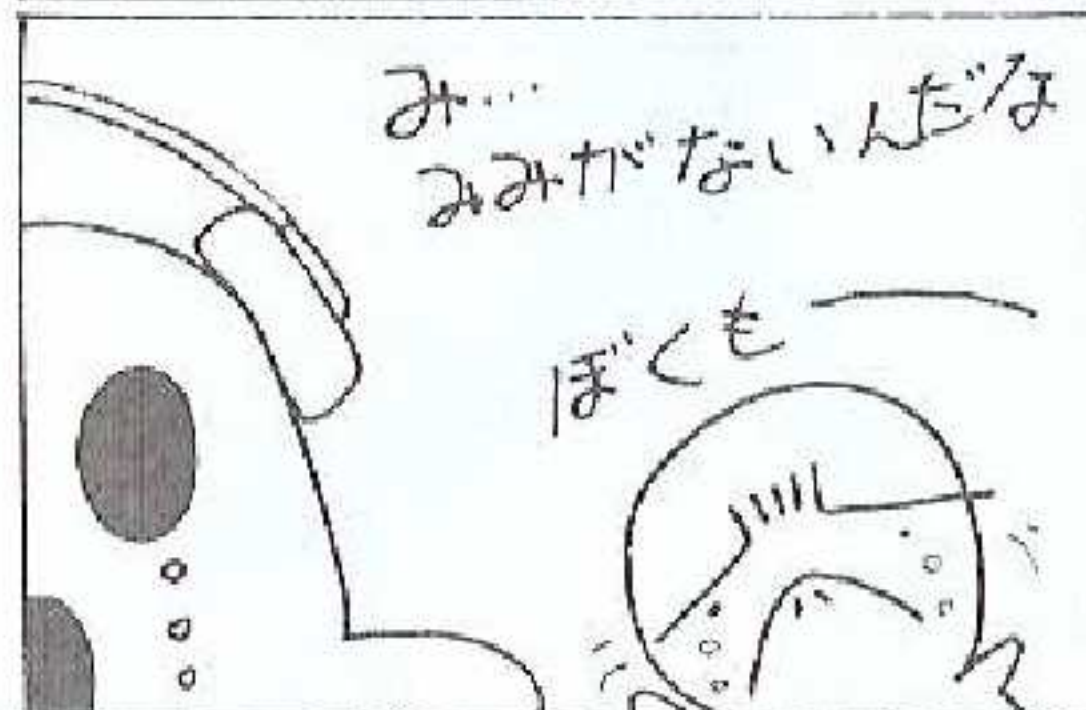 み…
みみがないんだよ
ぼくも